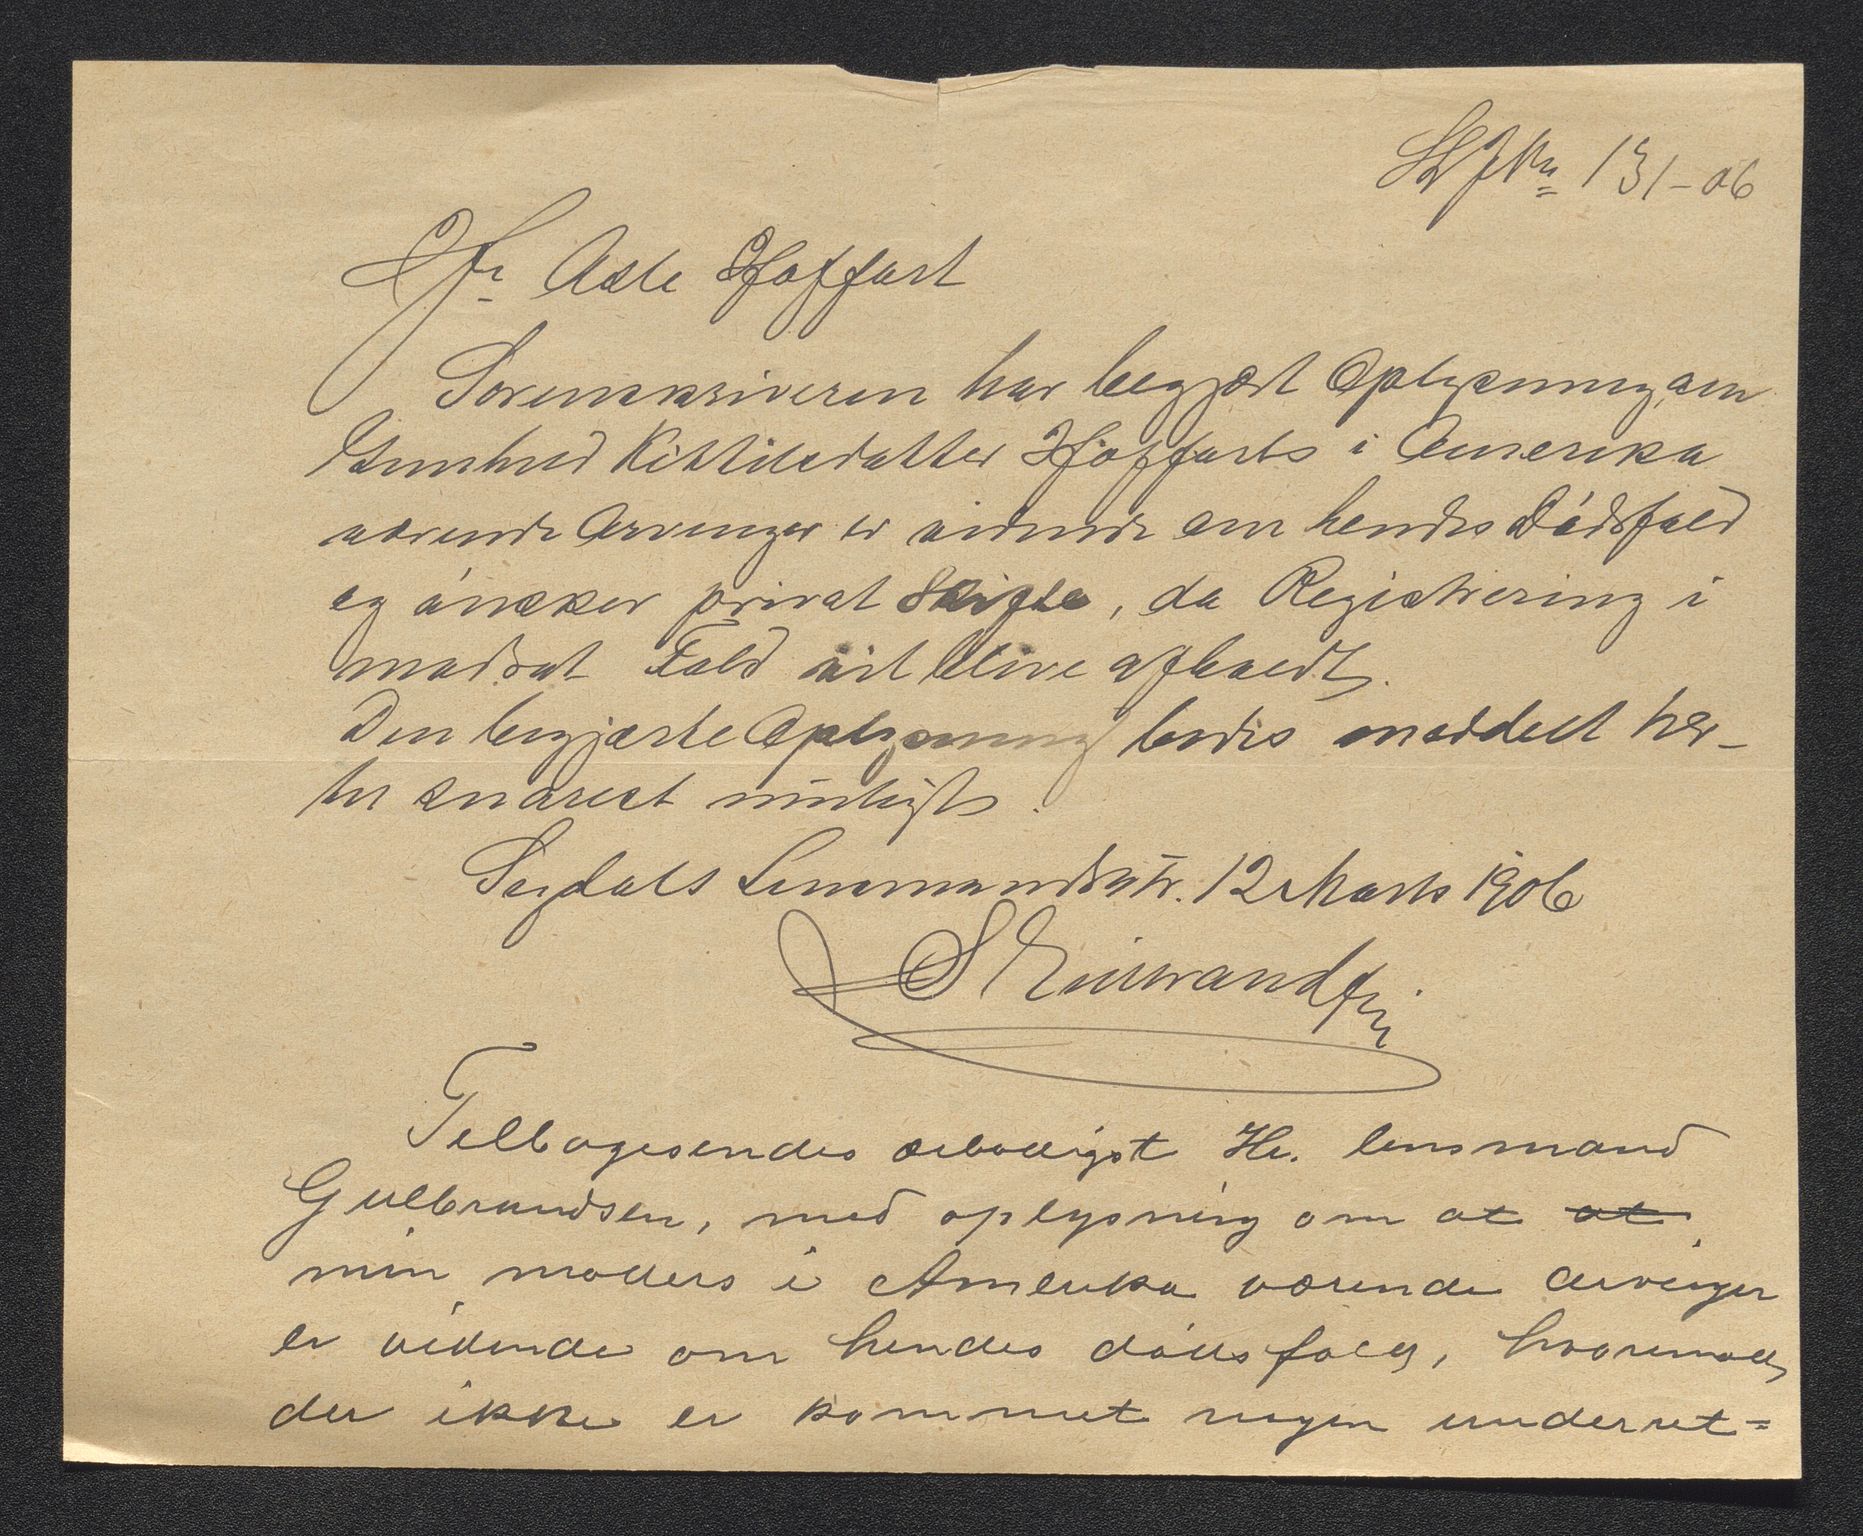 J Nr. 131-06
Hr. Asle Hoffart
Sorenskriveren har begjært Oplysning, om
Gunhild Kittilsdatter Hoffarts i Amerika
værende Arvinger er vidende om hendes Dödsfald
og önsker privat Skifte, da Registrering i
modsat Fald vil blive afholdt.
Den begjærte Oplysning bedes meddelt her-
til snarest muligt.
Sigdals Lensmandsktr. 12 Marts 1906
S Gulbrandsen
Tilbagesendes ærbødigst Hr. lensmand
Gulbrandsen, med oplysning om at at
min moders i Amerika værende arvinger
er vidende om hendes dödsfald, hvorimod
der ikke er kommet nogen underret=